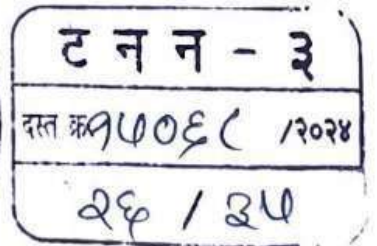 ट न न - ३
दस्त क्र१५०६८ /२०२४
२६ / ३५